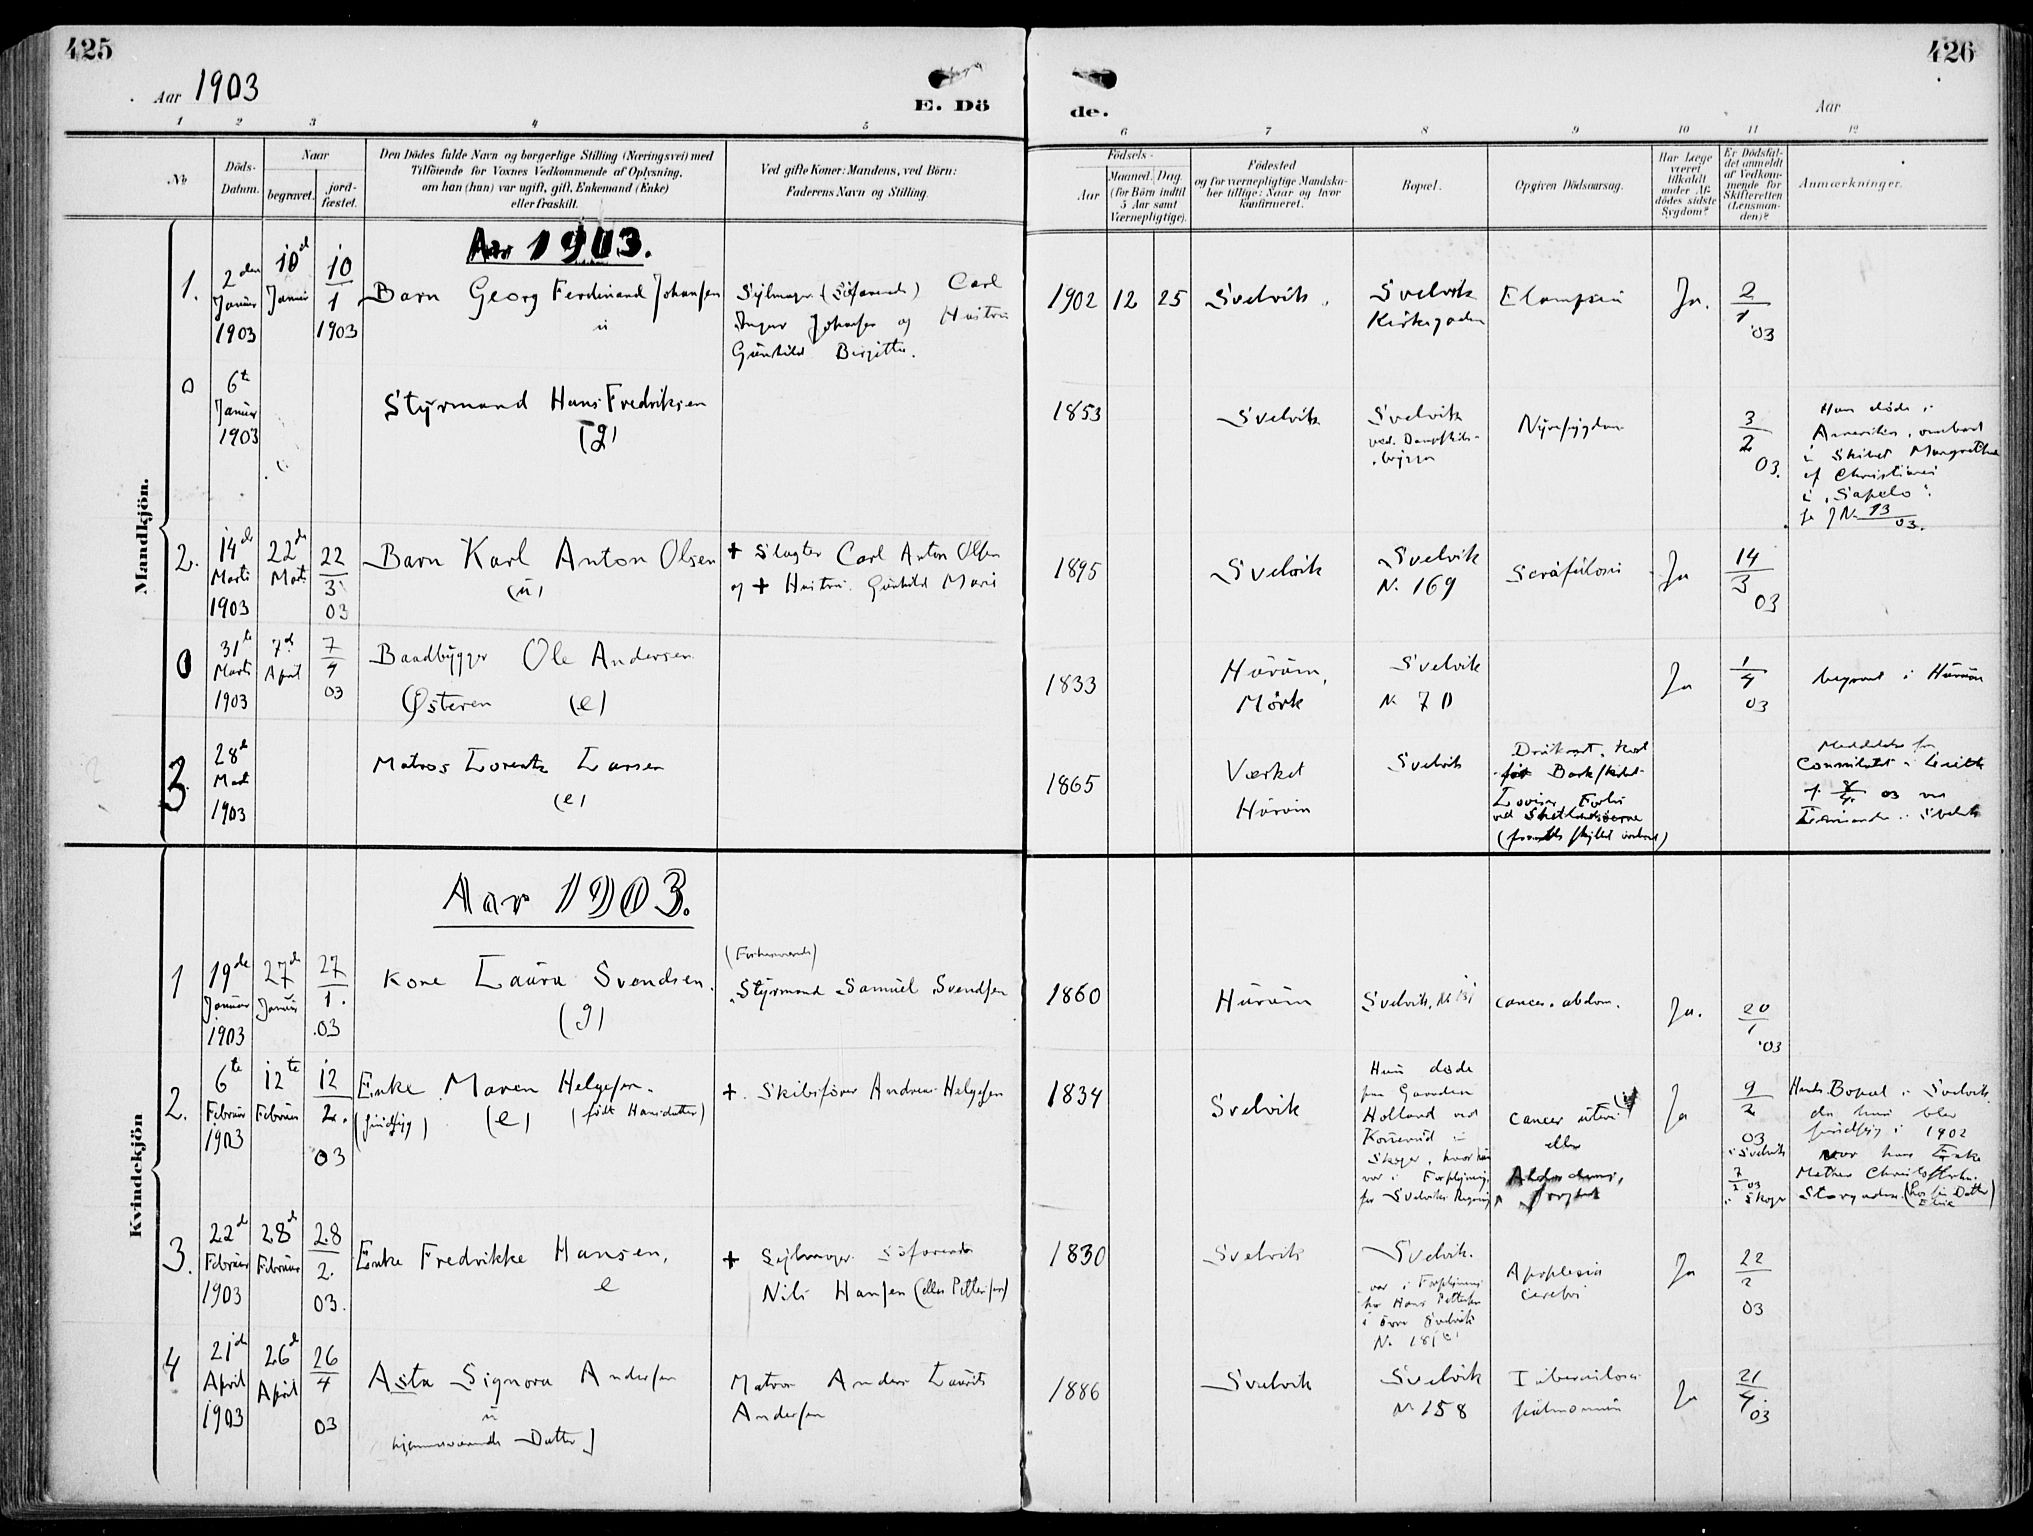 425
426
Aar 1903
E. Dö
de.
Aar
1 2 3 4 5 6 7 8 9 10 11 12
No
Döds-
Datum.
Naar
begravet.
jord-
fæstet.
Den Dödes fulde Navn og borgerlige Stilling (Næringsvei) med
Tilföiende for Voxnes Vedkommende af Oplysning,
om han (hun) var ugift, gift, Enkemand (Enke)
eller fraskilt.
Ved gifte Koner: Mandens, ved Börn:
Faderens Navn og Stilling.
Födsels-
Aar
Maaned. Dag.
(for Börn indtil
5 Aar samt
Værnepligtige).
Födested
og for værnepligtige Mandska-
ber tillige: Naar og hvor
konfirmeret.
Bopæl.
Opgiven Dödsaarsag.
Har Læge
været
tilkaldt
under Af-
dödes sidste
Sygdom?
Er Dödsfal-
det anmeldt
af Vedkom-
mende for
Skifteretten
(Lensman-
den)?
Anmærkninger.
Mandkjön.
Aar 1903.
1.
2den
Januar
1903
10d
Januar
10
1
1903
Barn Georg Ferdinand Johansen
u
Seilmager (Söfarende) Carl
Johansen og Hustru
Gunhild Birgitte.
1902 12 25
Svelvik.
Svelvik
Kirkegaden
Eclampsia
Ja.
2
1
03
0
6te
Januar
1903
Styrmand Hans Fredriksen
(g)
1853
Svelvik
Svelvik
ved Dampskibs-
bryggen
Nyresygdom
3
2
03.
Han döde i
Amerika, ombord
i Skibet Margrethe
af Christiania
i "Sapelo".
JN. 13
03.
2.
14de
Marts
1903
22de
Marts
22
3
03
Barn Karl Anton Olsen
(u)
+ Slagter Carl Anton Olsen
og + Hustru Gunhild Marie
1895
Svelvik
Svelvik
N. 169
Scrofulose
Ja
14
3
03
0
31te
Marts
1903
7d
April
7
4
03
Baadbygger Ole Andersen
Østeren (e)
1833
Hurum,
Mörk
Svelvik
N. 70
Ja
1
4
03
begravet i Hurum
3
28de
Marts
1903
Matros Lorentz Larsen
(e)
1865
Værket
Hurum
Svelvik
Druknet,
Barkskibet
Lovise Forlis
ved Shetlandsöerne
Meddelelse fra
Consulatet i Leith
03
Svelvik
Kvindekjön
Aar 1903.
1
19de
Januar
1903
27de
Januar
27
1.
03
Kone Laura Svendsen.
(g)
(Forhenværende)
Styrmand Samuel Svendsen
1860
Hurum
Svelvik,
cancer. abdom.
Ja.
20
1
03
2.
6te
Februar
1903
12te
Februar
12
2.
03
Enke Maren Helgesen.
(sindssyg) (e) (født Hansdatter)
+ Skibsförer Andreas Helgesen
1834
Svelvik
Hun döde
paa Gaarden
Holland ved
Konnerud i
Skoger, hvor hun
var i Forpleining
for Svelviks Regning
cancer uteri
eller
Ja
9
2
03
i Svelvik
7
2 03
i Skoger
Hendes Bopæl i Svelvik,
da hun blev
sindssyg i 1902
var hos Enke
Mathea Christoffersen
Storgaden. (hos sin Datter)
3.
22de
Februar
1903
28de
Februar
28
2.
03.
Enke Fredrikke Hansen,
e
+ Seilmager Söfarende
Nils Hansen (eller Pettersen)
1830
Svelvik
Svelvik.
var i Forpleining
hos Hans Pettersen
i övre Svelvik
Apoplexia
cerebri
Ja
22
2
03
4
21de
April
1903
26de
April
26
4
03
Asta Signora Andersen
u
hjemmeværende Datter)
Matros Anders Laurits
Andersen
1886
Svelvik
Svelvik
N. 158
Tuberculosis
pulmonum
Ja
21
4.
03